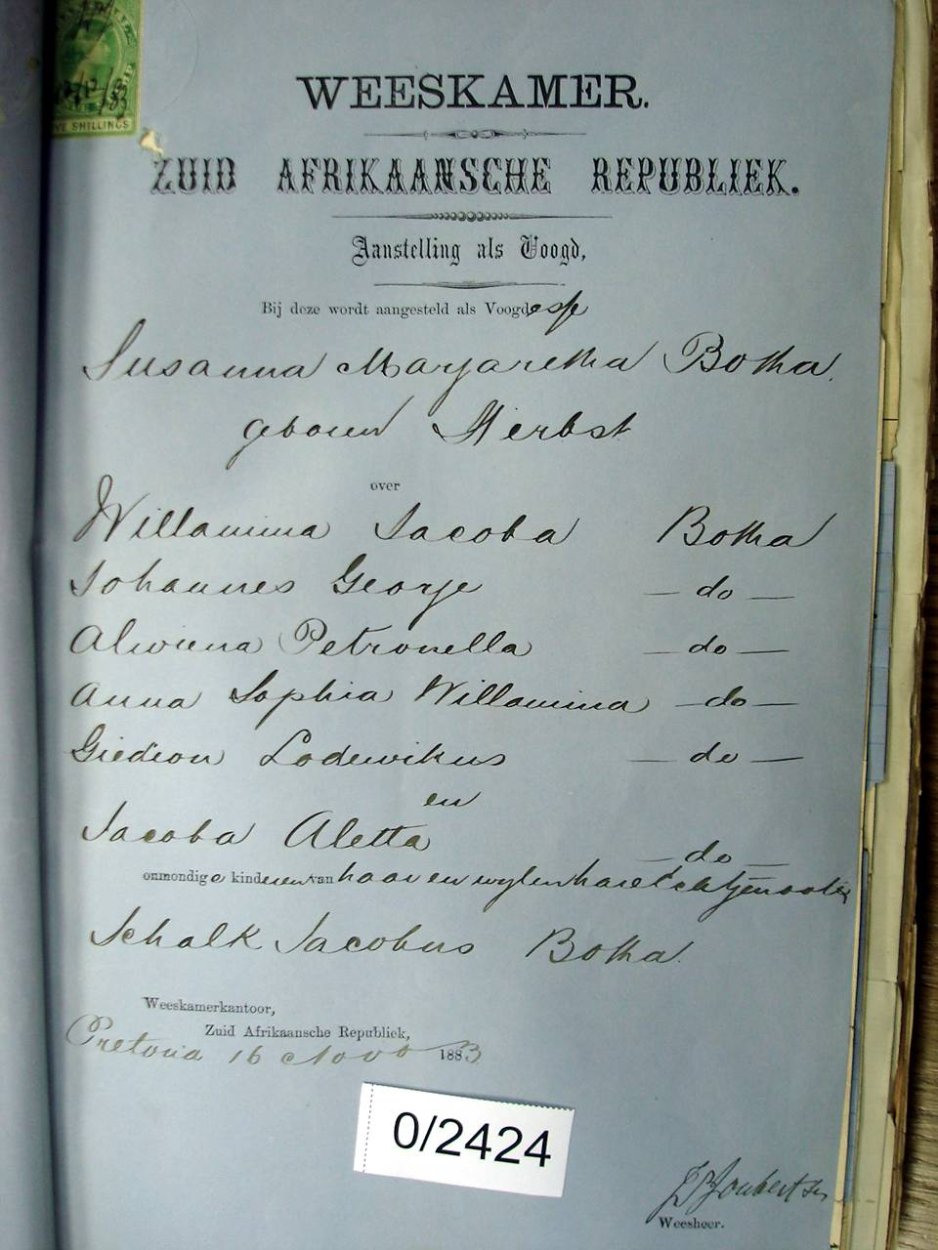 VE SHILLINGS
WEESKAMER.
ZUID AFRIKAANSCHE REPUBLIEK.
Aanstelling als Voogd,
Bij deze wordt aangesteld als Voogdesse
Susanna Margaretha Botha.
geboren Herbst
over
Willamina Jacoba Botha
Johannes George — do —
Alwiena Petronella — do —
Anna Sophia Willamina — do —
Giedeon Lodewikus — do —
en
Jacoba Aletta — do —
onmondige kinderen van haar en wylen hare Echtgenoot
Schalk Jacobus Botha.
Weeskamerkantoor,
Zuid Afrikaansche Republiek,
Pretoria 16 Novb 1883
0/2424
Joubert
Weesheer.